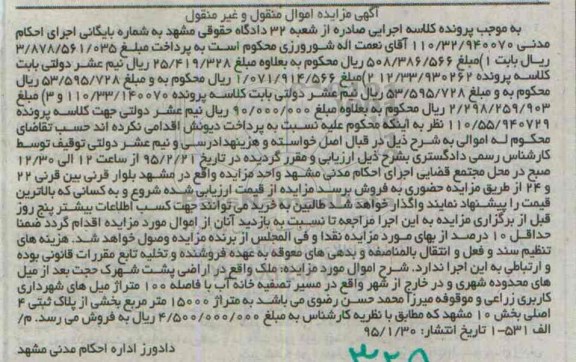 آگهی مزایده اموال منقول و غیر منقول
به موجب پرونده کلاسه اجرایی صادره از شعبه ۳۲ دادگاه حقوقی مشهد به شماره بایگانی اجرای احکام
مدنی ۱۱۰/۳۲/۹۴۰۰۷۰ آقای نعمت اله شورورزی محکوم است به پرداخت مبلغ ۳/۸۷۸/۵۶۱/۰۳۵
ریال بابت ۱)مبلغ ۵۰۸/۳۸۶/۵۶۶ ریال محکوم به بعلاوه مبلغ ۲۵/۴۱۹/۳۲۸ ریال نیم عشر دولتی بابت
کلاسه پرونده ۱۲/۳۳/۹۳۰۲۶۲ ۲)مبلغ ۱/۰۷۱/۹۱۴/۵۶۶ ریال محکوم به و مبلغ ۵۳/۵۹۵/۷۲۸ ریال
محکوم به و مبلغ ۵۳/۵۹۵/۷۲۸ ریال نیم عشر دولتی بابت کلاسه پرونده ۱۱۰/۳۳/۱۴۰۰۷۰ و ۳) مبلغ
۲/۲۹۸/۲۵۹/۹۰۳ ریال محکوم به بعلاوه مبلغ ۹۰/۰۰۰/۰۰۰ ریال نیم عشر دولتی جهت کلاسه پرونده
۱۱۰/۵۵/۹۴۰۷۲۹ نظر به اینکه محکوم علیه نسبت به پرداخت دیونش اقدامی نکرده اند حسب تقاضای
محکوم له اموالی به شرح ذیل در قبال اصل خواسته و هزینه‏دادرسی و نیم عشر دولتی توقیف توسط
کارشناس رسمی دادگستری بشرح ذیل ارزیابی و مقرر گردیده در تاریخ ۹۵/۲/۲۱ از ساعت ۱۲ الی ۱۲/۳۰
صبح در محل مجتمع قضایی اجرای احکام مدنی مشهد واحد مزایده واقع در مشهد بلوار قرنی بین قرنی ۲۲
و ۲۴ از طریق مزایده حضوری به فروش برسد مزایده از قیمت ارزیابی شده شروع و به کسانی که بالاترین
قیمت را پیشنهاد نمایند واگذار خواهد شد. طالبین به خرید می توانند جهت کسب اطلاعات بیشتر پنج روز
قبل از برگزاری مزایده به این اجرا مراجعه تا نسبت به بازدید آنان از اموال مورد مزایده اقدام گردد ضمنا
حداقل ۱۰ درصد از بهای مورد مزایده نقدا و فی المجلس از برنده مزایده وصول خواهد شد. هزینه های
تنظیم سند و فعل و انتقال بالمناصفه و بدهی های معوقه به عهده فروشنده و تخلیه تابع مقررات قانونی بوده
و ارتباطی به این اجرا ندارد. شرح اموال مورد مزایده: ملک واقع در اراضی پشت شهرک حجت بعد از میل
های محدوده شهری و در خارج از شهر واقع در مسیر تصفیه خانه آب با فاصله ۱۰۰ متراژ میل های شهرداری
کاربری زراعی و موقوفه میرزا محمد حسن رضوی می باشد به متراژ ۱۵۰۰۰ متر مربع بخشی از پلاک ثبتی ۴
اصلی بخش ۱۰ مشهد که مطابق با نظریه کارشناس به مبلغ ۴/۵۰۰/۰۰۰/۰۰۰ ریال به فروش می رسد. م/
الف ۵۳۱-۱ تاریخ انتشار: ۹۵/۱/۳۰
دادورز اداره احکام مدنی مشهد